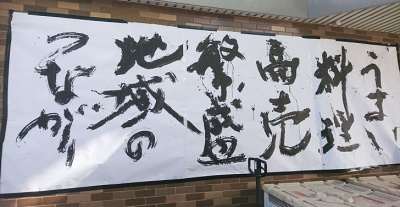 うまい
料理
商売
繁盛
地域の
つながり